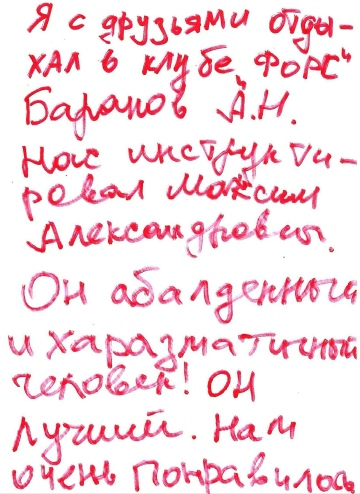 Я с друзьями отды-
хал в клубе "Форс"
Баранов А.Н.
Нас инструкти-
ровал Максим
Александровы.
Он абалденный
и харазматичный
человек! Он
лучший. Нам
очень понравилось